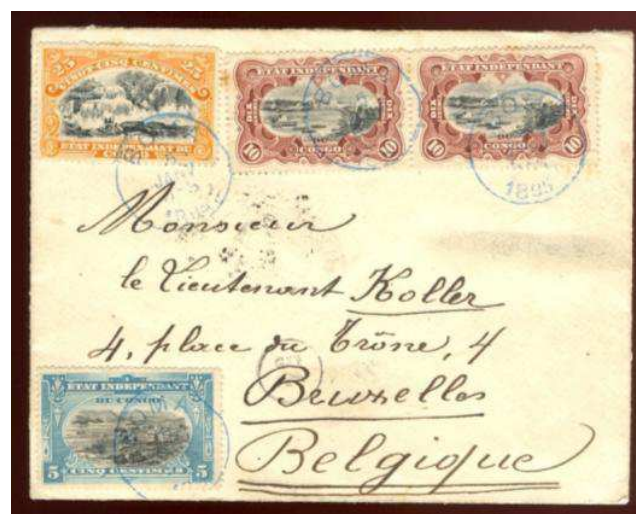 25 VINGT CINQ CENTIMES 25
ETAT INDEPENDANT DU
CONGO
ETAT INDEPENDANT
DIX
10 CONGO 10
ETAT INDEPENDANT
DIX
10 CONGO 10
JANV
1895
Monsieur
le Lieutenant Koller
4, place du Trône, 4
Bruxelles
Belgique
ETAT INDEPENDANT
DU CONGO
5 CINQ CENTIMES 5